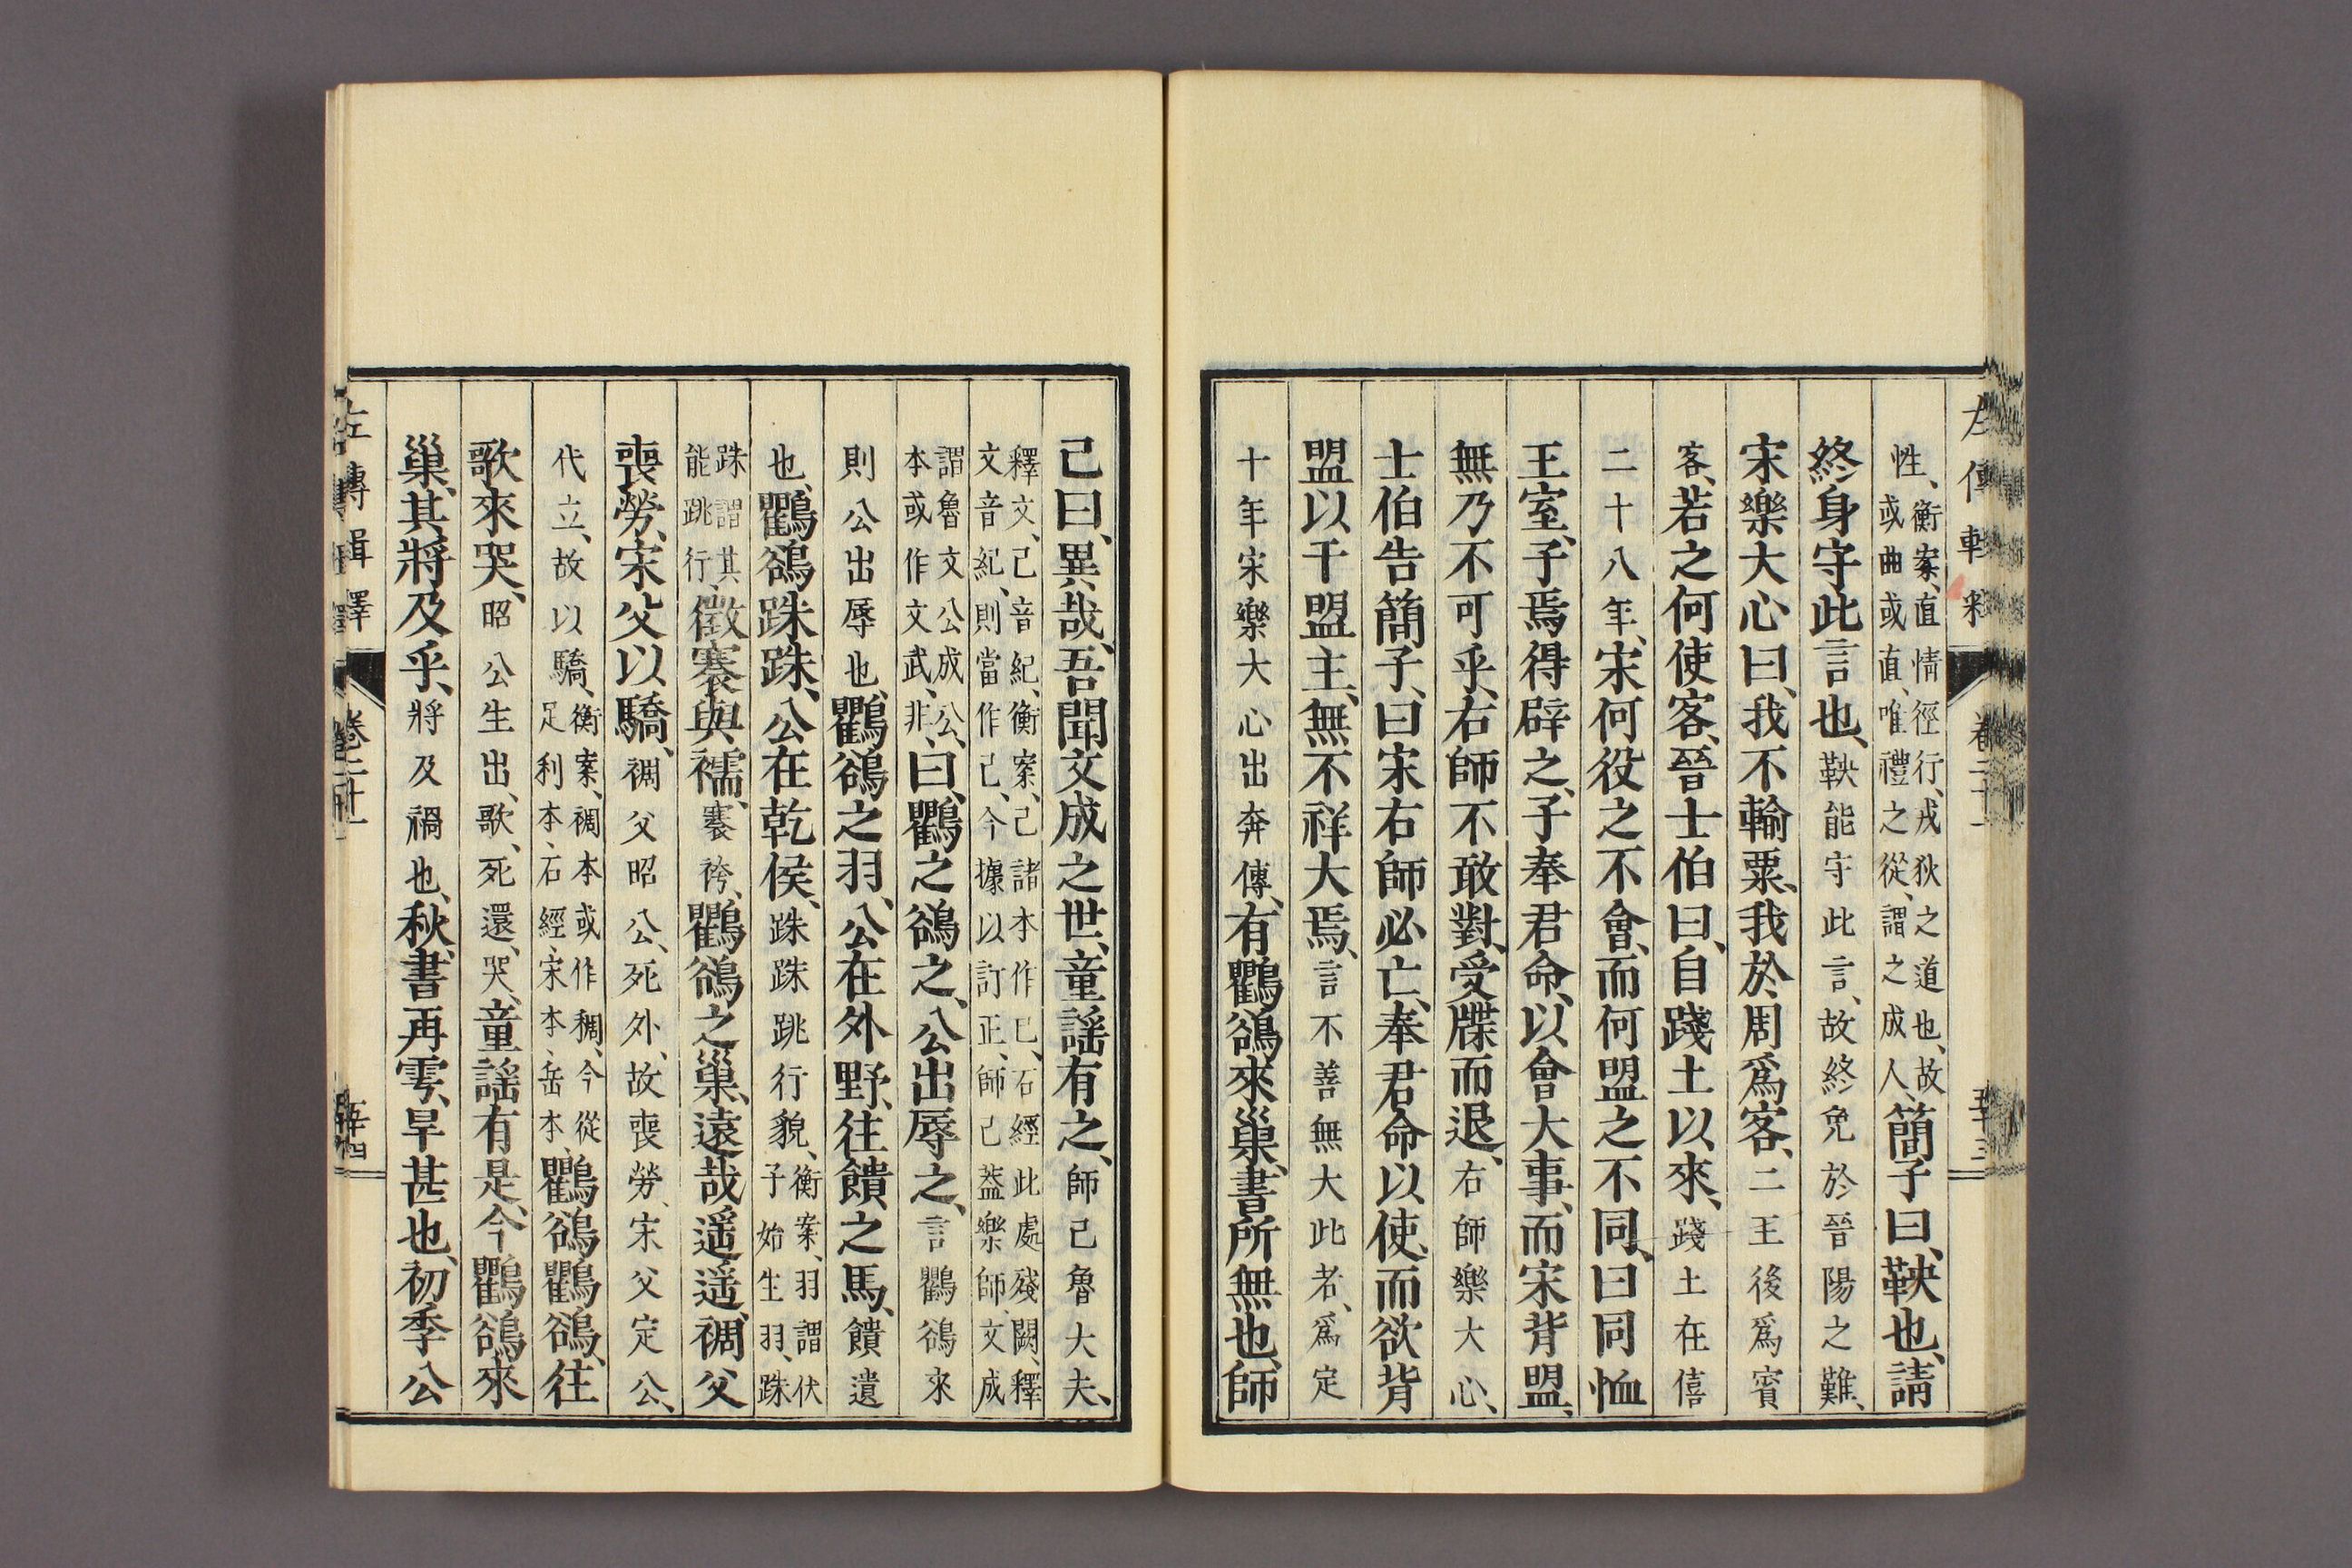 性、衡案、直情徑行、戎狄之道也、故或曲或直、唯禮之從、謂之成人、簡子曰、鞅也、請
終身守此言也、鞅能守此言、故終免於晉陽之難、
宋樂大心曰、我不輸粟、我於周爲客、二王後爲賓
客、若之何使客、晉士伯曰、自踐土以來、踐土在僖
二十八年、宋何役之不會、而何盟之不同、曰同恤
王室、子焉得辟之、子奉君命、以會大事、而宋背盟、
無乃不可乎、右師不敢對、受牒而退、右師樂大心、
士伯告簡子、曰宋右師必亡、奉君命以使、而欲背
盟以干盟主、無不祥大焉、言不善無大此者、爲定
十年宋樂大心出奔傳、有鸜鵒來巢、書所無也、師
己曰、異哉、吾聞文成之世、童謠有之、師己魯大夫、
釋文、己音紀、衡案、己諸本作巳、石經此處殘闕、釋文音紀、則當作己、今據以訂正、師己蓋樂師、文成
謂魯文公成公、本或作文武、非、曰、鸜之鵒之、公出辱之、言鸜鵒來
則公出辱也、鸜鵒之羽、公在外野、往饋之馬、饋遺
也、鸜鵒跦跦、公在乾侯、跦跦跳行貌、衡案、羽謂伏子始生羽、跦
跦謂其能跳行、徵褰與襦、褰袴、鸜鵒之巢、遠哉遥遥、裯父
喪勞、宋父以驕、裯父昭公、死外、故喪勞、宋父定公、
代立、故以驕、衡案、裯本或作稠、今從足利本、石經、宋本、岳本、鸜鵒鸜鵒、往
歌來哭、昭公生出、歌、死還、哭、童謠有是、今鸜鵒來
巢、其將及乎、將及禍也、秋、書再雩、旱甚也、初季公
左傳輯釋 卷二十一 五十四